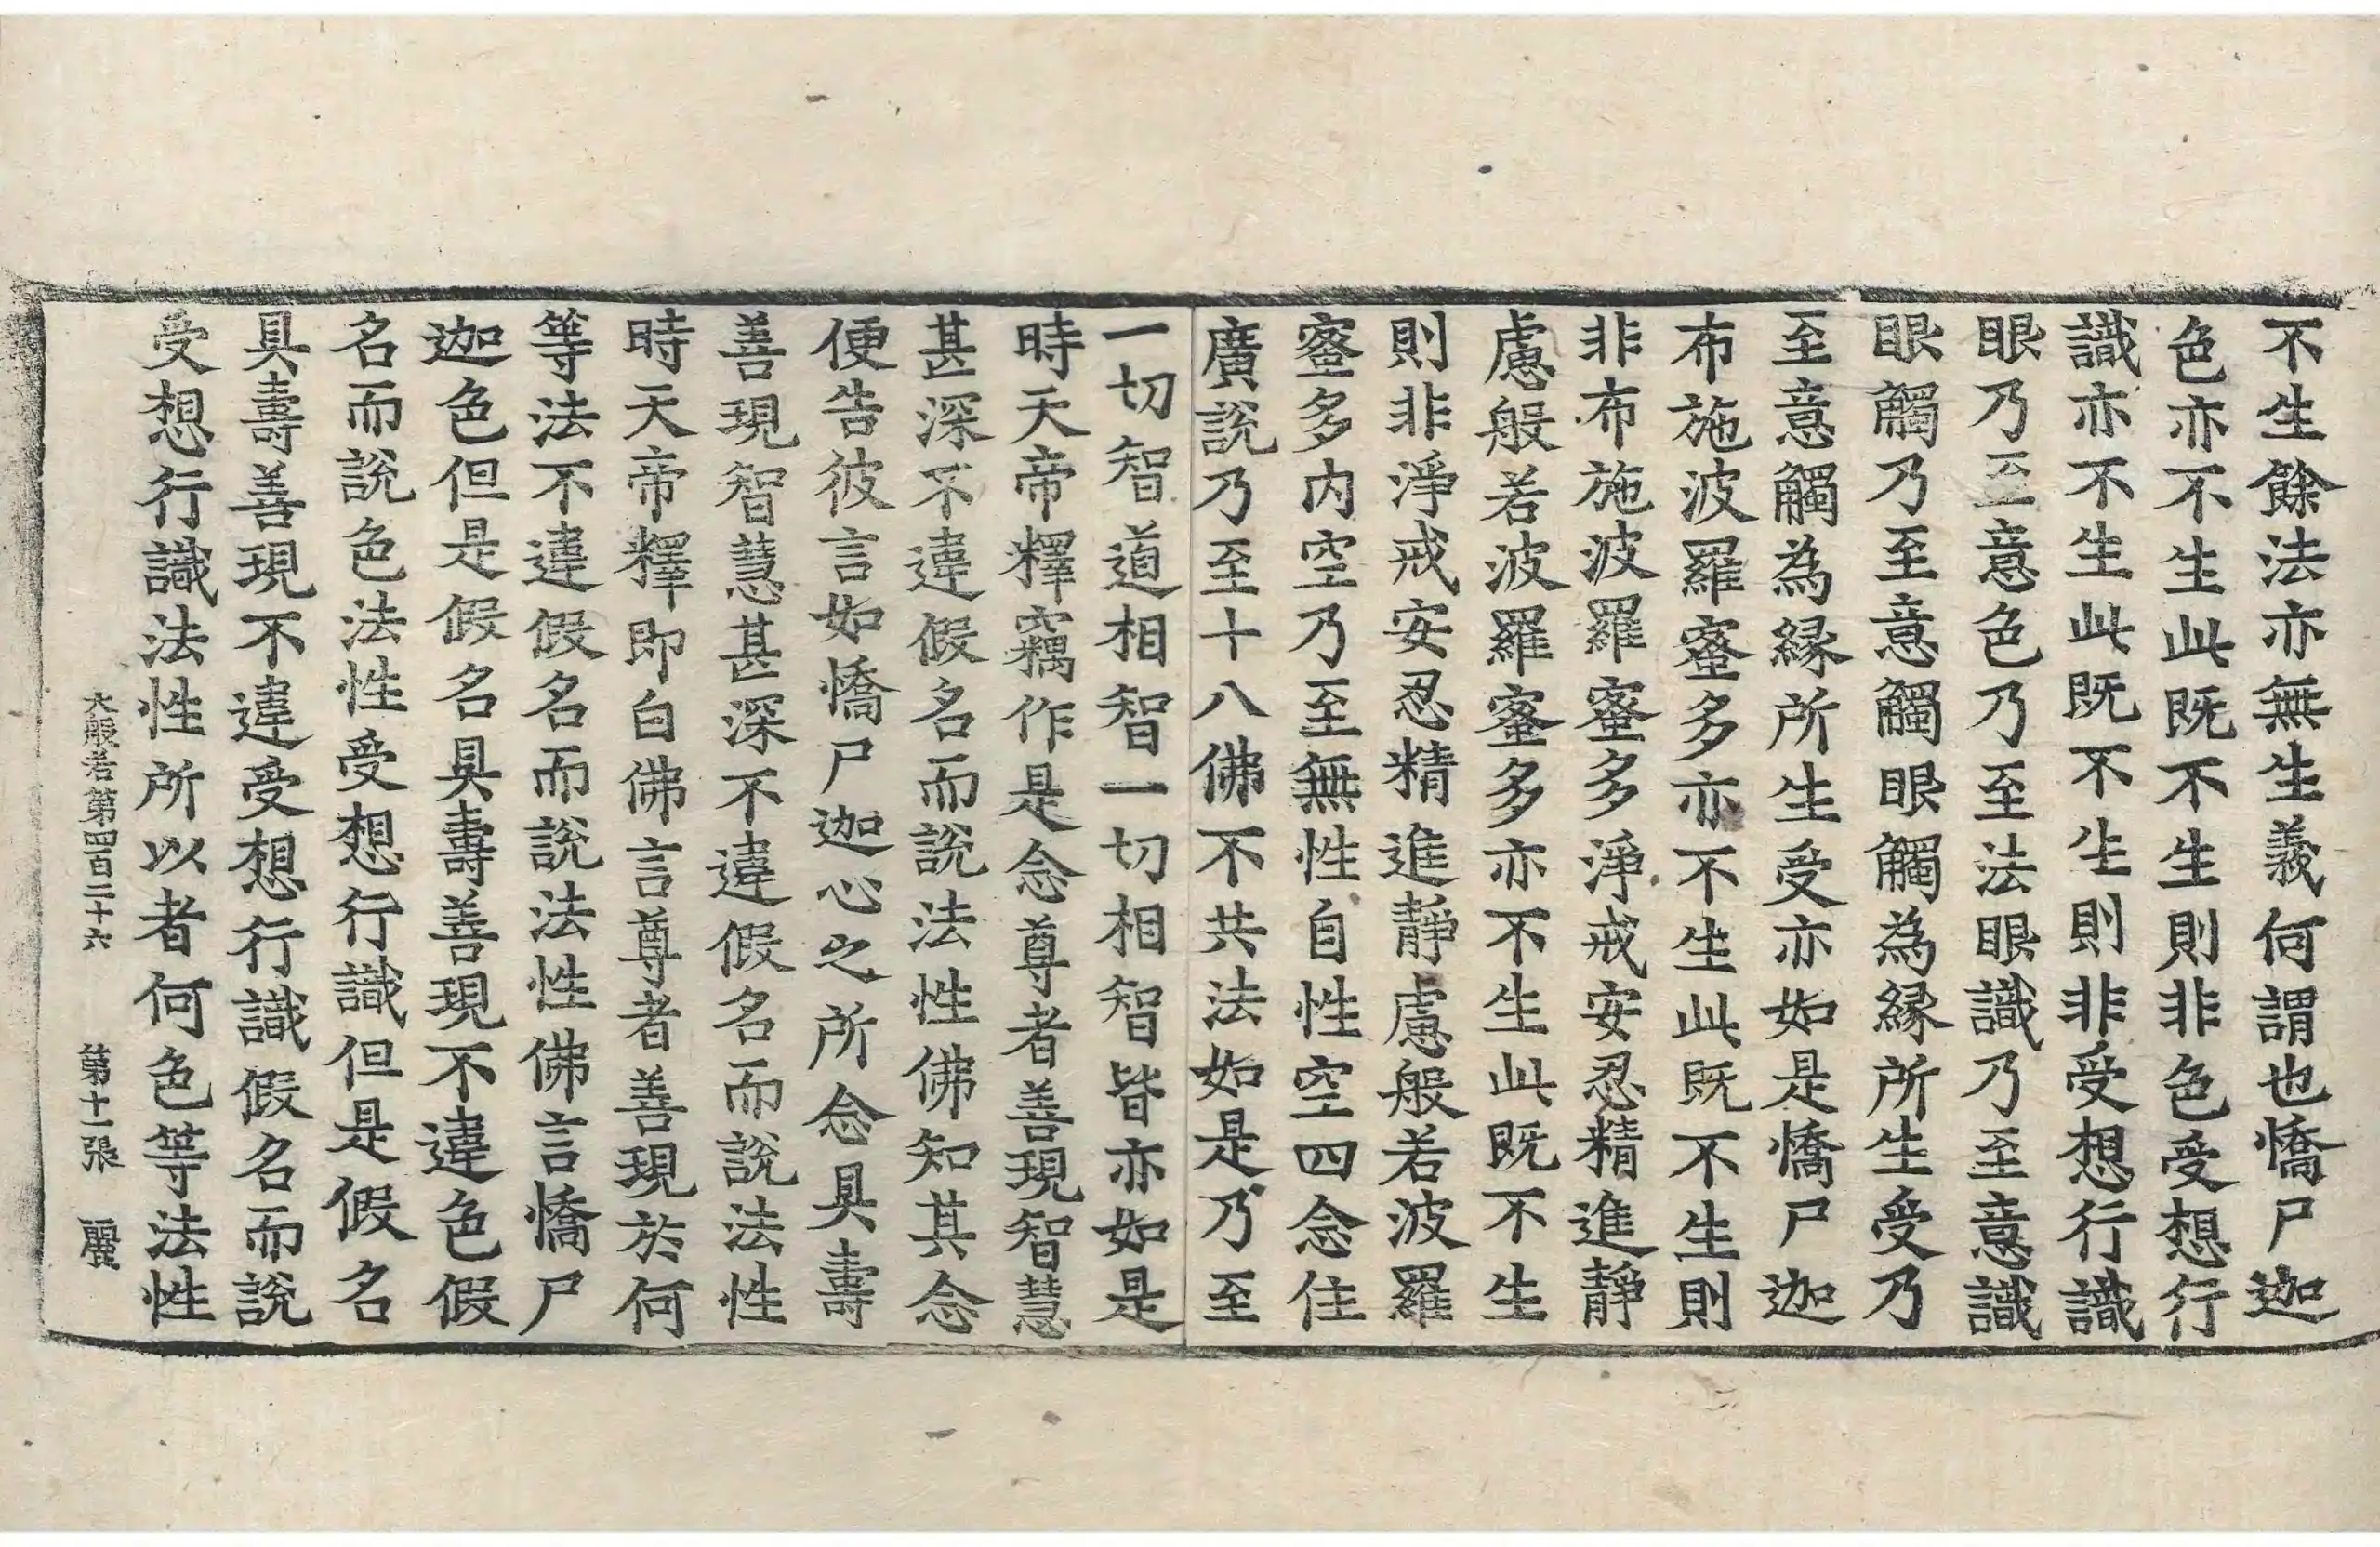 不生餘法亦無生義何謂也憍尸迦
色亦不生此既不生則非色受想行
識亦不生此既不生則非受想行識
眼乃至意色乃至法眼識乃至意識
眼觸乃至意觸眼觸為緣所生受乃
至意觸為緣所生受亦如是憍尸迦
布施波羅蜜多亦不生此既不生則
非布施波羅蜜多淨戒安忍精進靜
慮般若波羅蜜多亦不生此既不生
則非淨戒安忍精進靜慮般若波羅
蜜多内空乃至無性自性空四念住
廣說乃至十八佛不共法如是乃至
一切智道相智一切相智皆亦如是
時天帝釋竊作是念尊者善現智慧
甚深不違假名而說法性佛知其念
便告彼言如憍尸迦心之所念具壽
善現智慧甚深不違假名而說法性
時天帝釋即白佛言尊者善現於何
等法不違假名而說法性佛言憍尸
迦色但是假名具壽善現不違色假
名而說色法性受想行識但是假名
具壽善現不違受想行識假名而說
受想行識法性所以者何色等法性
大般若第四百二十六 第十一張 麗